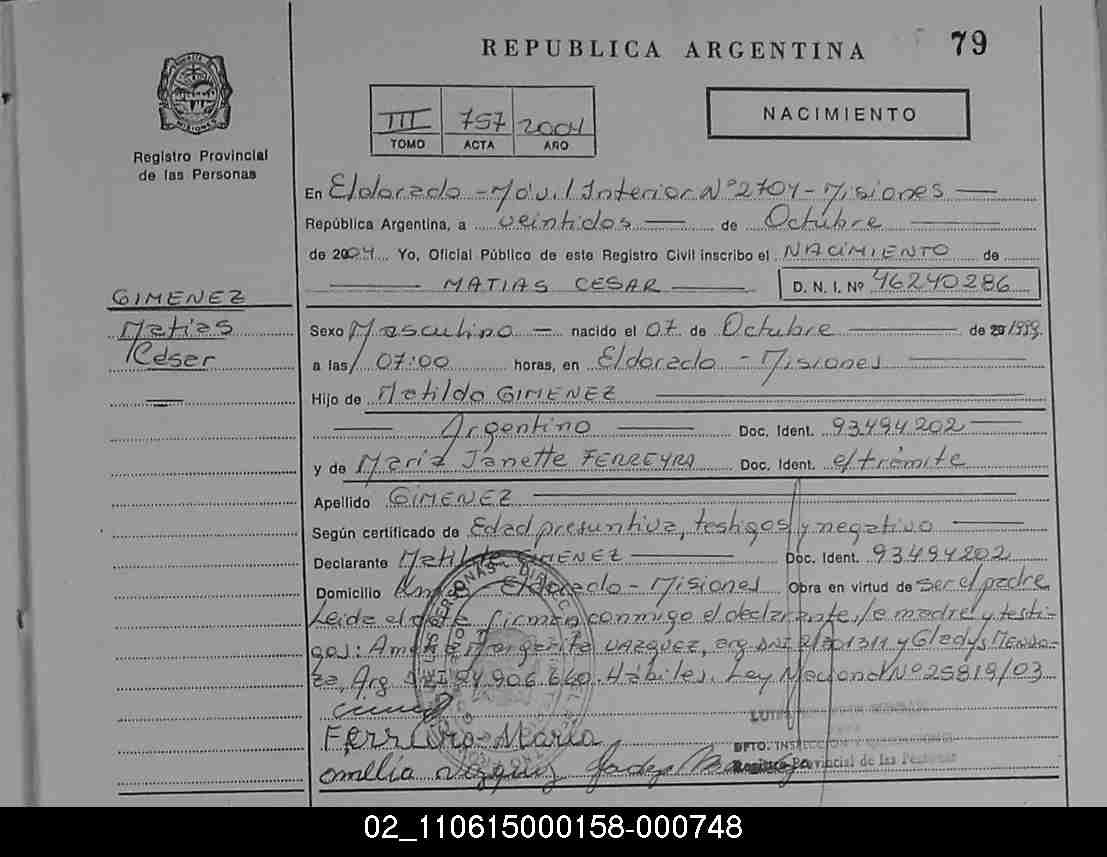 REPUBLICA ARGENTINA 79
III 757 2004
TOMO ACTA AÑO
NACIMIENTO
MISIONES
Registro Provincial
de las Personas
En Eldorado - Móvil Interior Nº 2704 - Misiones
República Argentina, a veintidos de Octubre
de 2004 Yo, Oficial Público de este Registro Civil inscribo el NACIMIENTO de
MATIAS CESAR D. N. I. Nº 46240286
GIMENEZ
Matias
Cesar
Sexo Masculino nacido el 07 de Octubre de 1999
a las 07:00 horas, en Eldorado - Misiones
Hijo de Matildo GIMENEZ
Argentino Doc. Ident. 93494202
y de Maria Janette FERREYRA Doc. Ident. e/trámite
Apellido GIMENEZ
Según certificado de Edad presuntiva, testigos y negativo
Declarante Matildo GIMENEZ Doc. Ident. 93494202
Domicilio Eldorado - Misiones Obra en virtud de ser el padre
Leida el acta firman conmigo el declarante, la madre y testi-
gos: Margarita VAZQUEZ, arg DNI y Gladys MENDO-
za, Arg DNI 906.660. Hábiles. Ley Nacional Nº 25819/03
Maria
DPTO. INSPECCION
Registro Provincial de las Personas
02_110615000158-000748